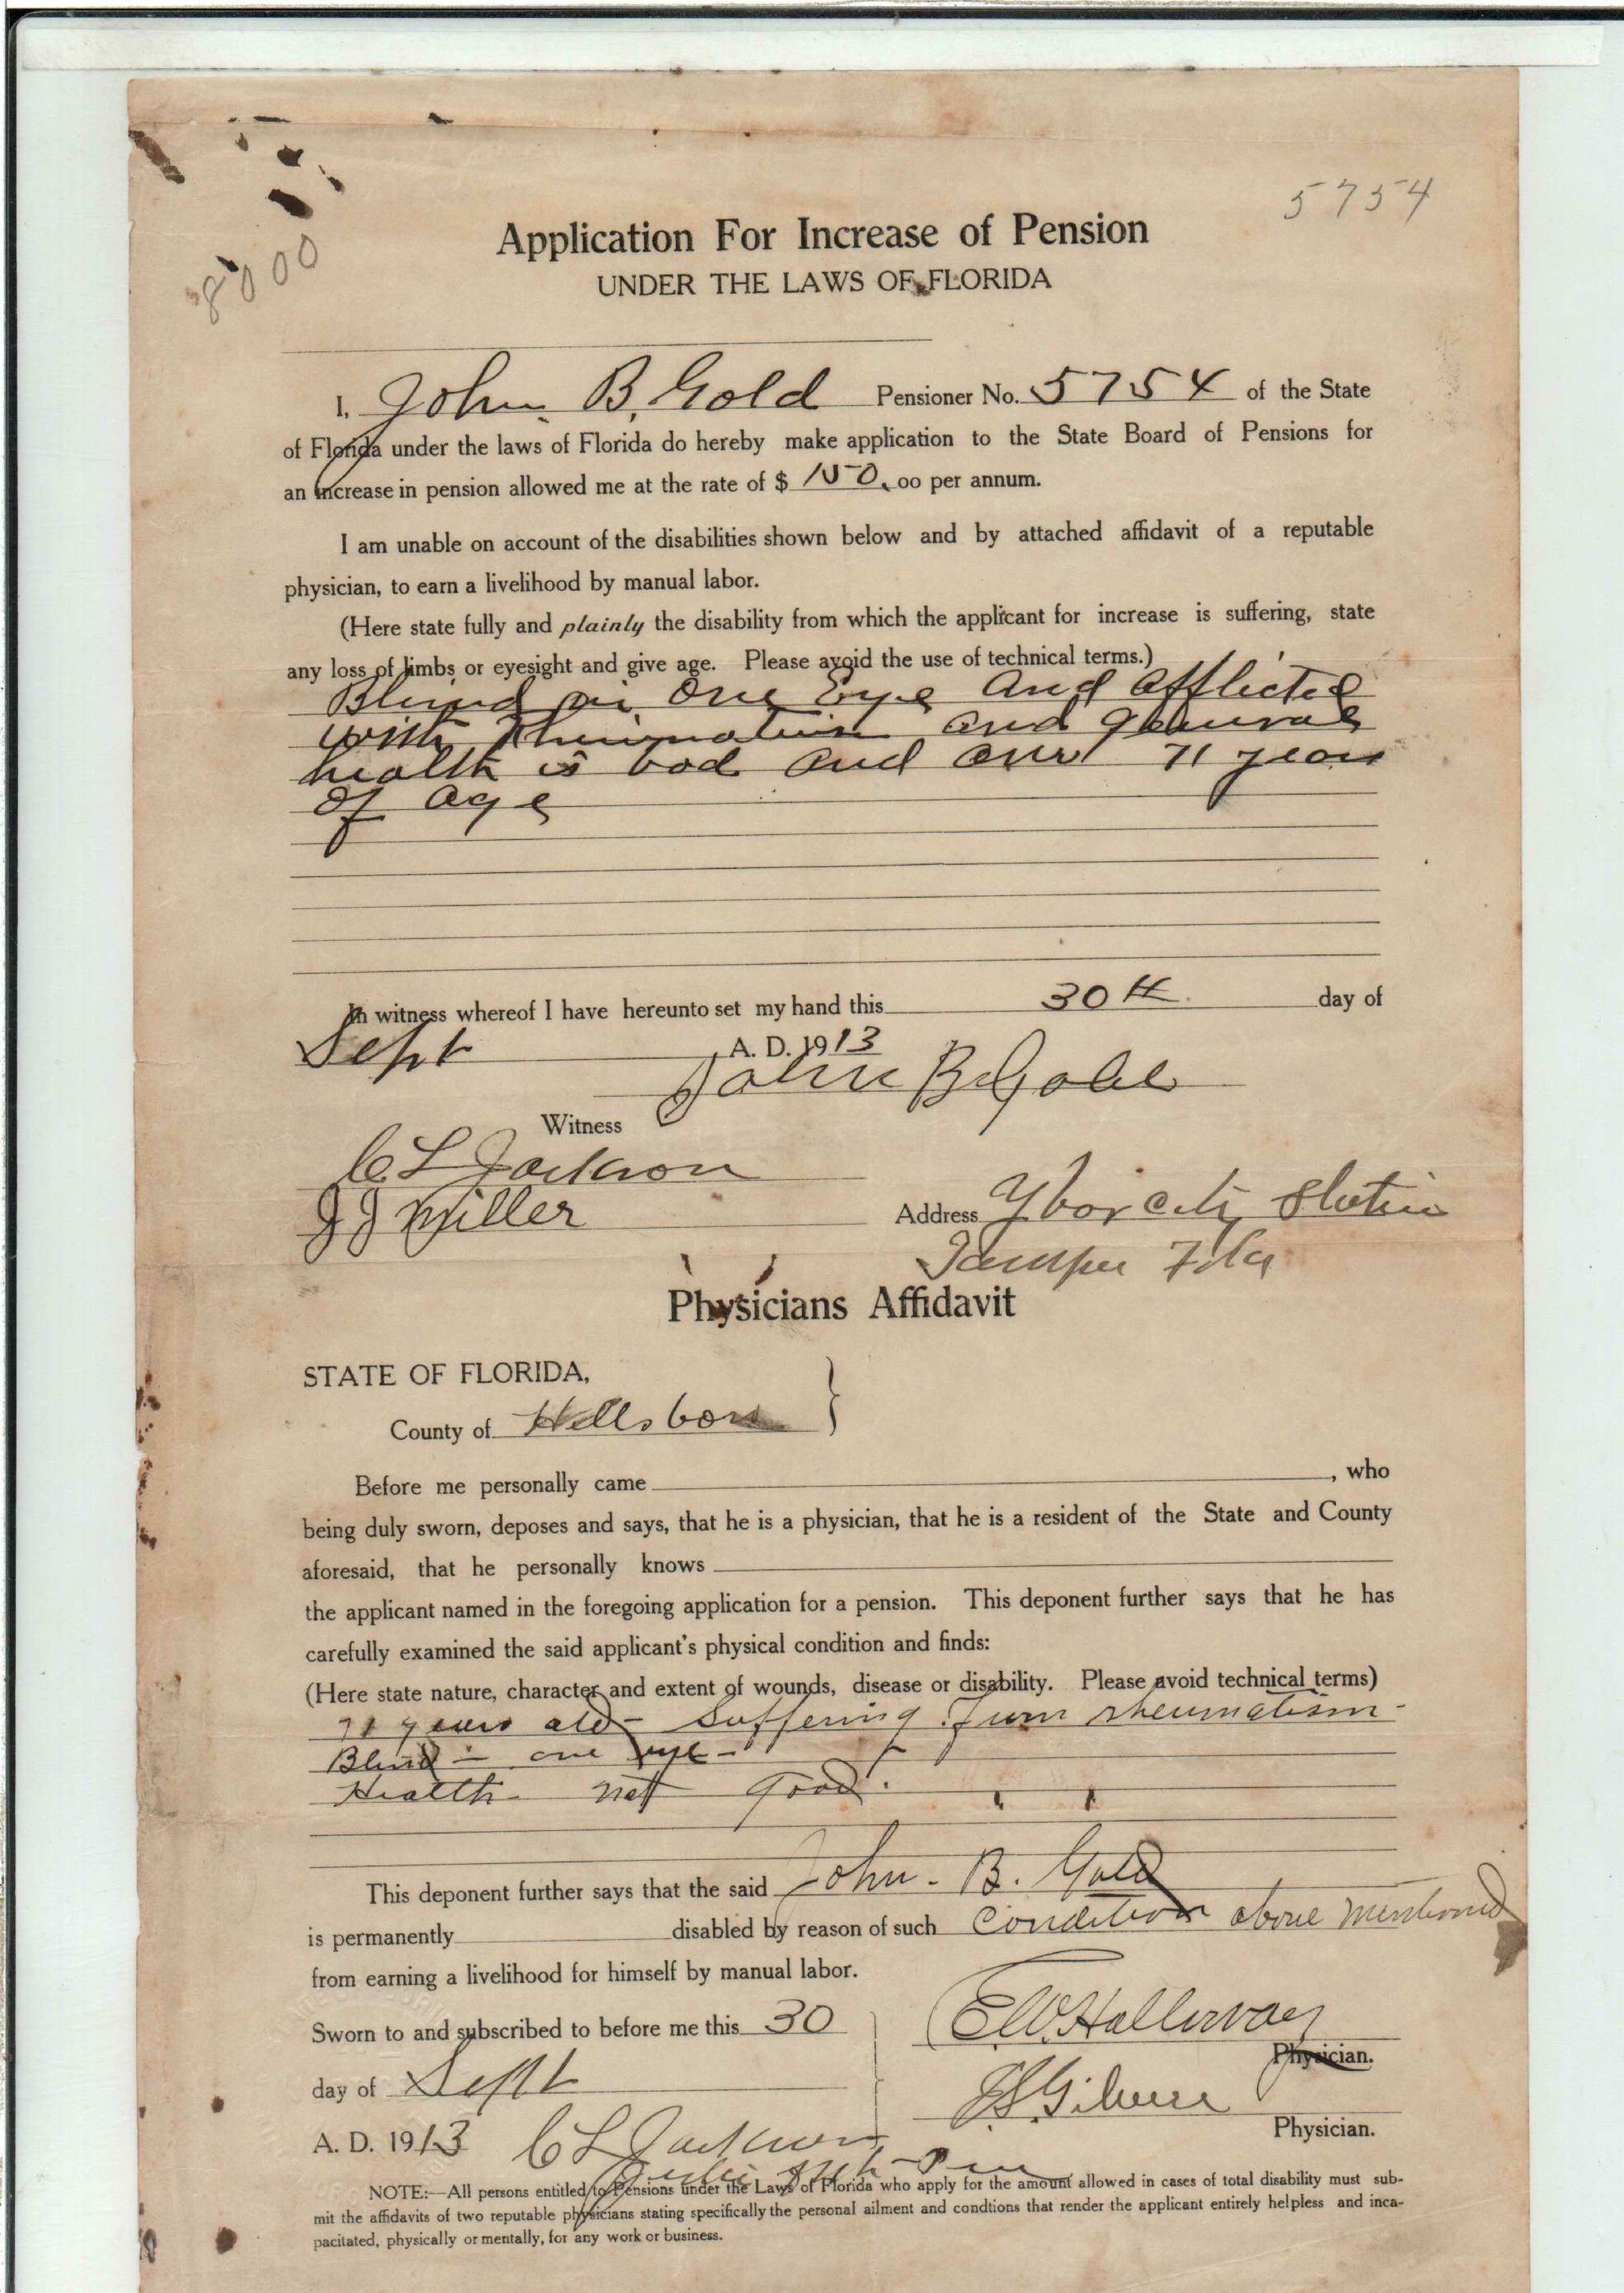 5754
8000
Application For Increase of Pension
UNDER THE LAWS OF FLORIDA
I, John B. Gold Pensioner No. 5754 of the State
of Florida under the laws of Florida do hereby make application to the State Board of Pensions for
an increase in pension allowed me at the rate of $ 150.00 per annum.
I am unable on account of the disabilities shown below and by attached affidavit of a reputable
physician, to earn a livelihood by manual labor.
(Here state fully and plainly the disability from which the applicant for increase is suffering, state
any loss of limbs or eyesight and give age. Please avoid the use of technical terms.)
Blind in one Eye and afflicted
with and general
health is bad and over 71 years
of age
In witness whereof I have hereunto set my hand this 30th day of
Sept A. D. 1913
John B Gold
Witness
C L Jackson
J J Miller
Address Ybor City Station
Tampa Fla
Physicians Affidavit
STATE OF FLORIDA,
County of Hillsboro
Before me personally came , who
being duly sworn, deposes and says, that he is a physician, that he is a resident of the State and County
aforesaid, that he personally knows
the applicant named in the foregoing application for a pension. This deponent further says that he has
carefully examined the said applicant's physical condition and finds:
(Here state nature, character and extent of wounds, disease or disability. Please avoid technical terms)
71 years old - Suffering from rheumatism -
Blind - one eye -
Health not good.
This deponent further says that the said John. B. Gold
is permanently disabled by reason of such condition above mentioned
from earning a livelihood for himself by manual labor.
Sworn to and subscribed to before me this 30
E. W. Holloway
Physician.
day of Sept
Physician.
A. D. 1913 C L Jackson
NOTE:—All persons entitled to Pensions under the Laws of Florida who apply for the amount allowed in cases of total disability must sub-
mit the affidavits of two reputable physicians stating specifically the personal ailment and condtions that render the applicant entirely helpless and inca-
pacitated, physically or mentally, for any work or business.